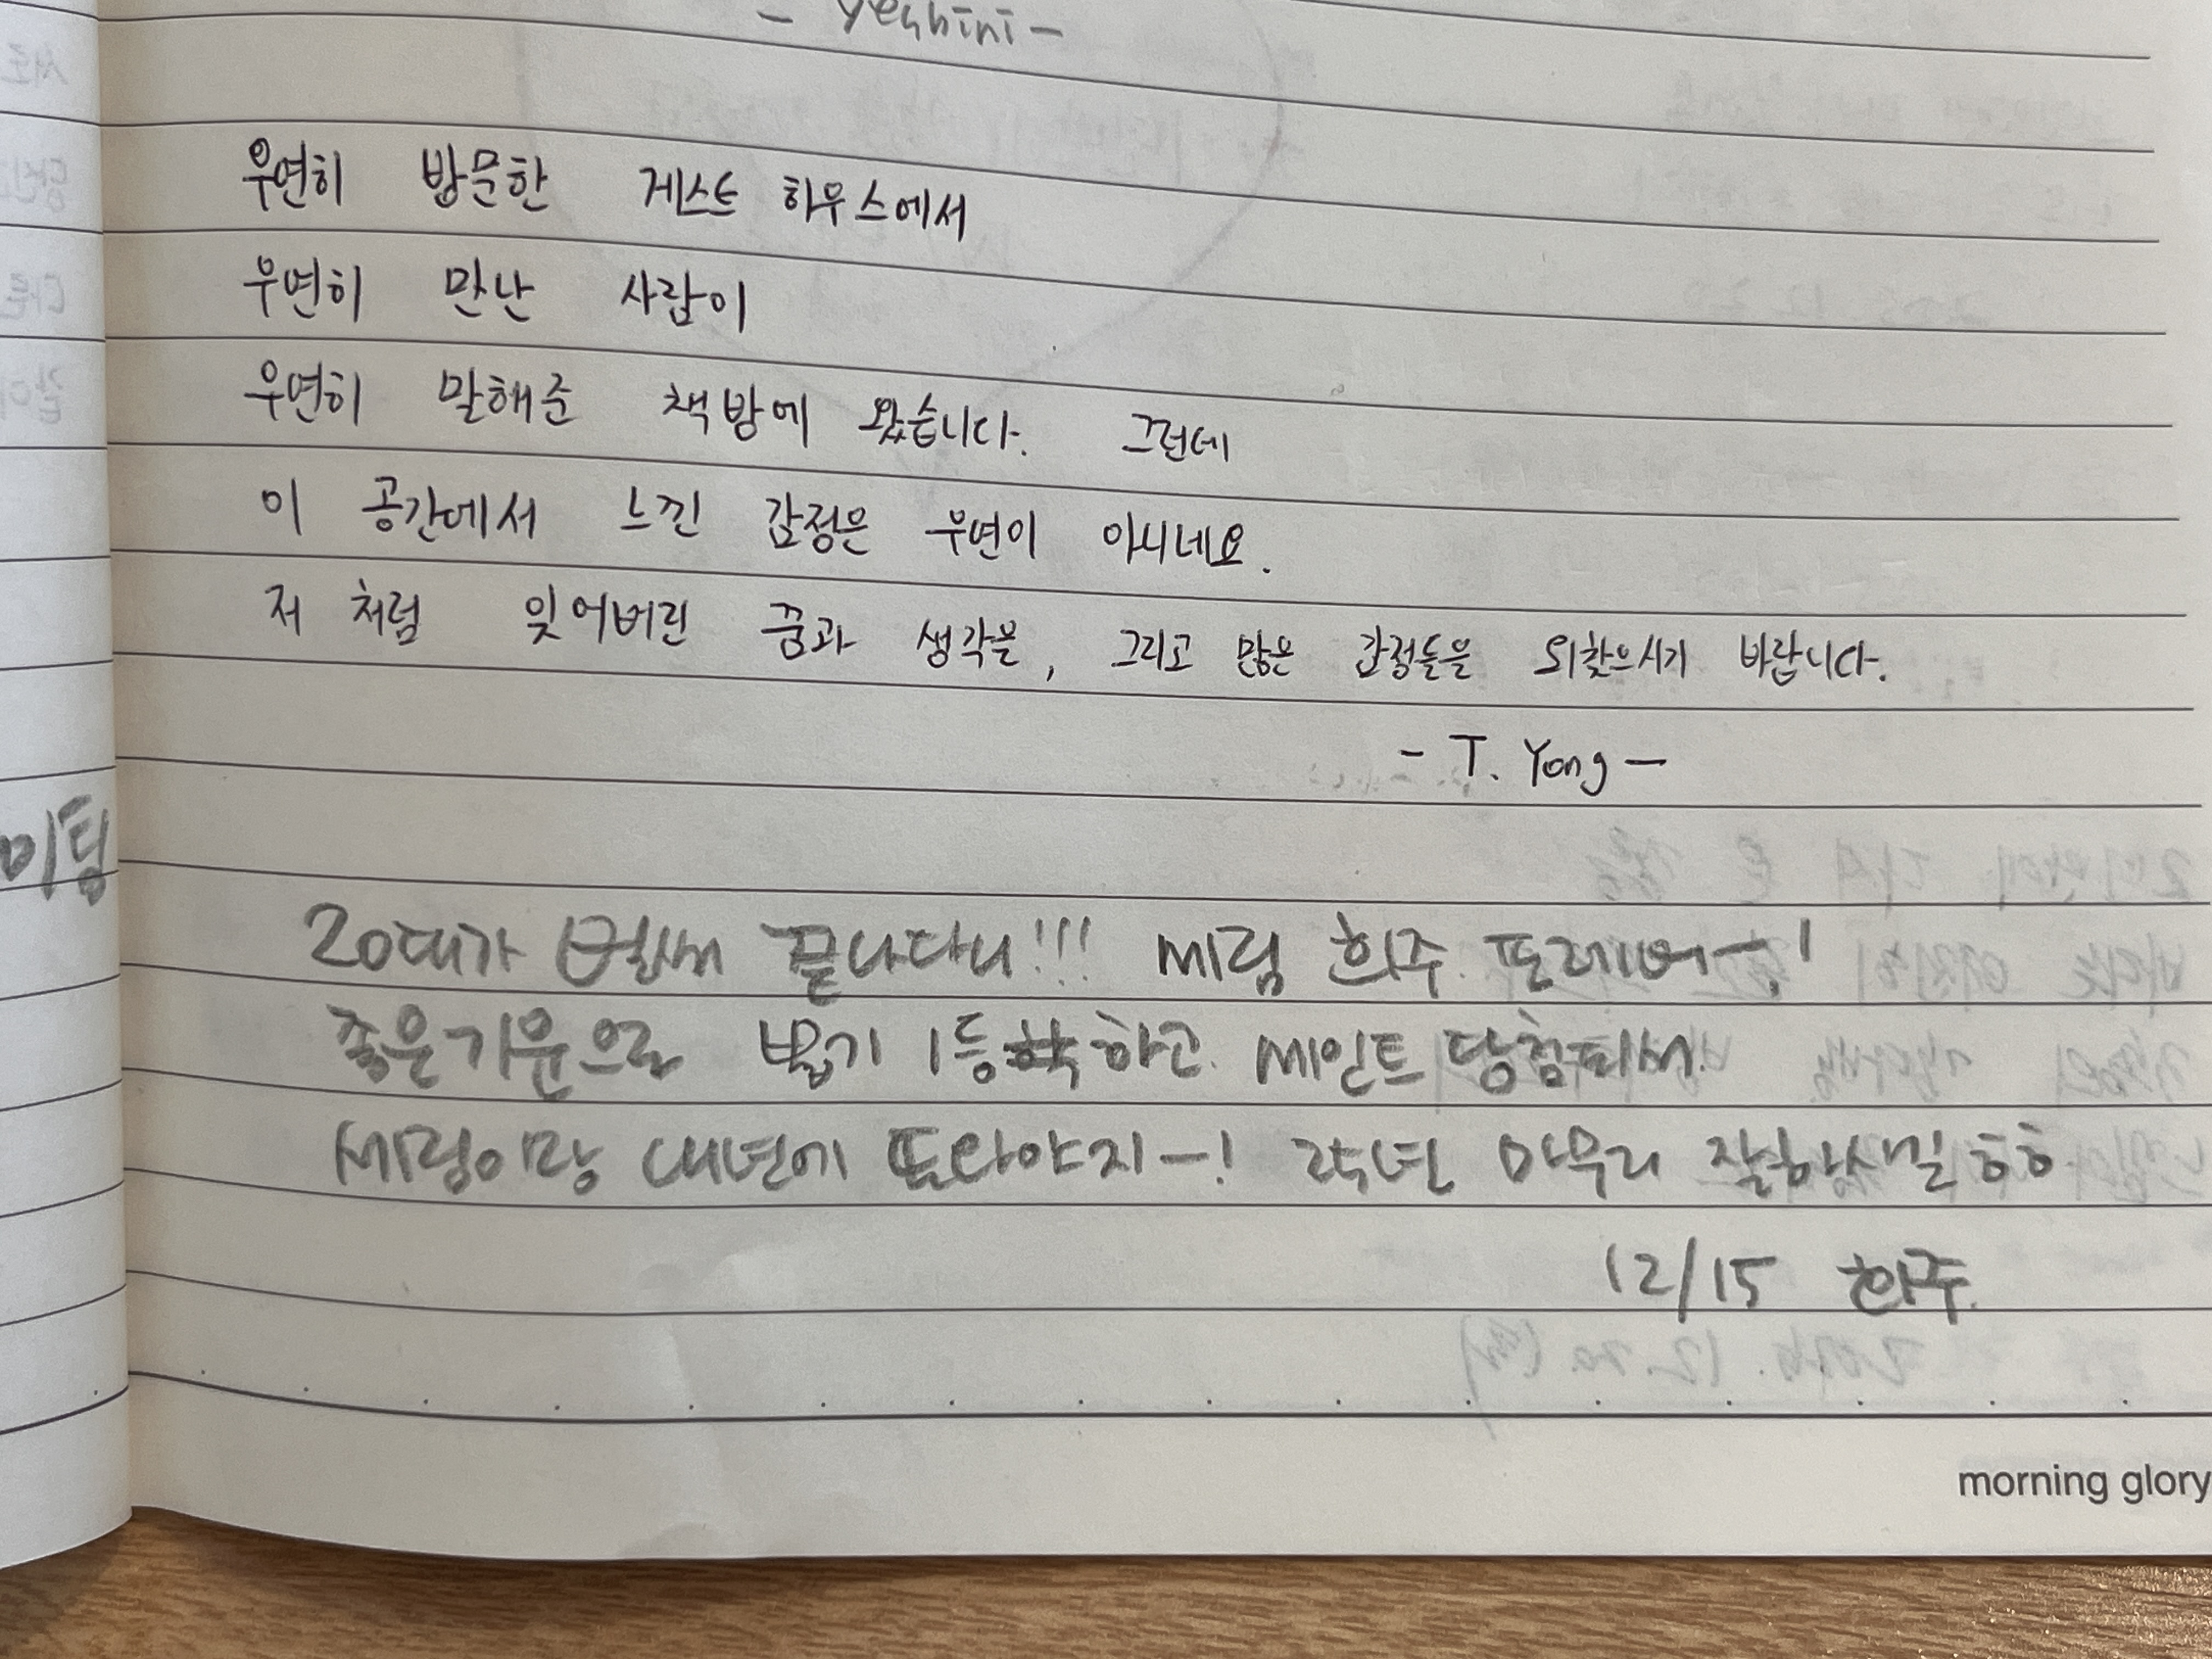 - Yeahbini -
우연히 방문한 게스트 하우스에서
우연히 만난 사람이
우연히 말해준 책방에 왔습니다. 그런데
이 공간에서 느낀 감정은 우연이 아니네요.
저 처럼 잊어버린 꿈과 생각을, 그리고 많은 감정들을 되찾으시기 바랍니다.
- T. Yong -
미팅
20대가 벌써 끝나다니!!! 세림 희주 포레버-!
좋은기운으로 뽑기 1등 하고 세인트 당첨되서
세림이랑 내년에 또와야지-! 2학년 마무리 잘하샘
12/15 희주.
morning glory